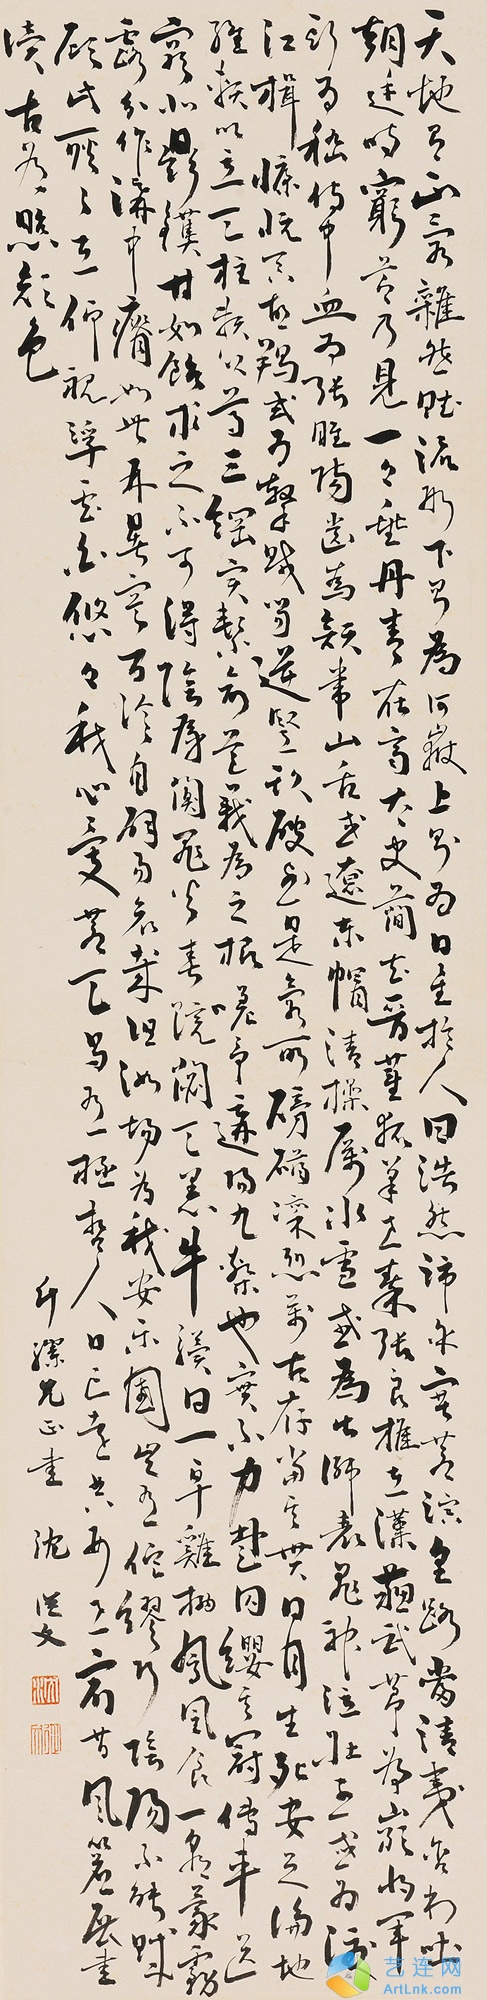 天地有正氣雜然賦流形下則為河嶽上則為日星於人曰浩然沛乎塞蒼冥皇路當清夷含和吐
朝廷時窮節乃見一一垂丹青在齊太史簡在晉董狐筆在秦張良椎在漢蘇武節為嚴將軍
頭為嵇侍中血為張睢陽齒為顏常山舌或遼東帽清操厲冰雪或為出師表鬼神泣壯烈或為渡
江楫慷慨吞胡羯或為擊賊笏逆豎頭破裂是氣所磅礴凜烈萬古存當其貫日月生死安足論地
維賴以立天柱賴以尊三綱實繫命道義為之根嗟予遘陽九隸也實不力楚囚纓其冠傳車送
窮北鼎鑊甘如飴求之不可得陰房闃鬼火春院閟天黑牛驥同一皁雞棲鳳凰食一朝蒙霧
露分作溝中瘠如此再暑寒百沴自辟易哀哉沮洳場為我安樂國豈有他繆巧陰陽不能賊
顧此耿耿在仰視浮雲白悠悠我心憂蒼天曷有極哲人日已遠典刑在宿昔風簷展書
讀古道照顏色
兄正書 沈從文
艺连网
ArtLnk.com